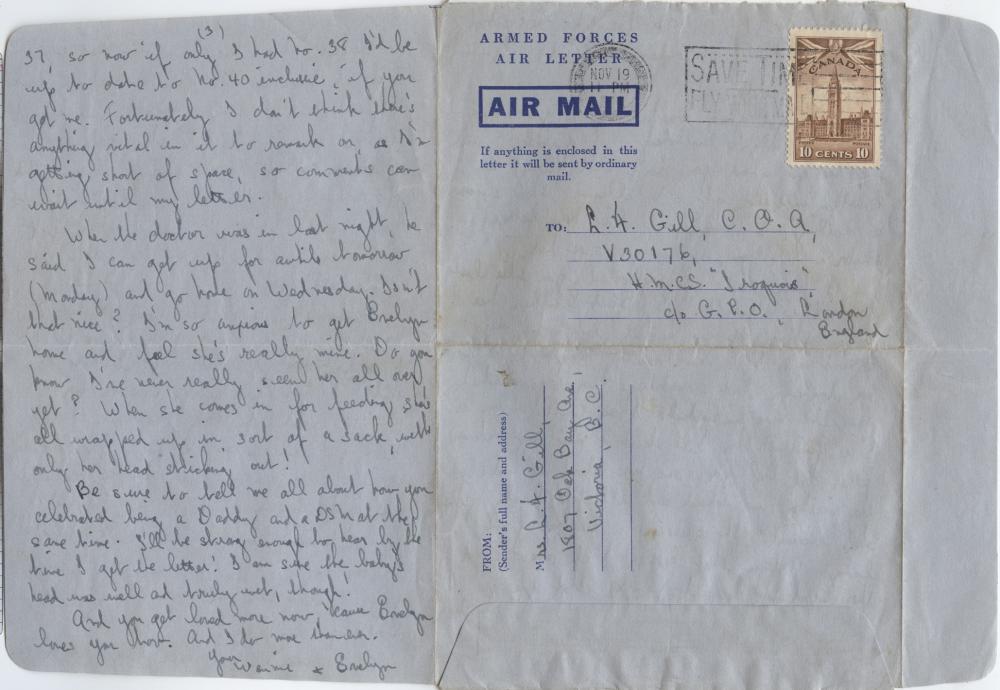 (3)
37, so now if only I had no. 38 I'd be
up to date to no. 40 inclusive, if you
got me. Fortunately I don't think there's
anything vital in it to remark on, as I'm
getting short of space, so comments can
wait until my letter.
When the doctor was in last night, he
said I can get up for awhile tomorrow
(Monday) and go home on Wednesday. Isn't
that nice? I'm so anxious to get Evelyn
home and feel she's really mine. Do you
know I've never really seen her all over
yet? When she comes in for feeding she's
all wrapped up in sort of a sack, with
only her head sticking out!
Be sure to tell me all about how you
celebrated being a Daddy and a at the
same time. I'll be strong enough to hear by the
time I get the letter! I am sure the baby's
head was well and truly wet, though!
And you get loved more now, 'cause Evelyn
loves you too. And I do more than ever.
Your Winnie x Evelyn
ARMED FORCES
AIR LETTER
AIR MAIL
If anything is enclosed in this
letter it will be sent by ordinary
mail.
NOV 19
11 PM
SAVE TIM
FLY
CANADA
POSTES POSTAGE
10 CENTS 10
TO: L. A. Gill, C. O. A,
V30176,
H.M.C.S. "Iroquois"
c/o G. P. O., London
England
FROM:
(Sender's full name and address)
Mrs L. A. Gill,
1807 Oak Bay Ave,
Victoria, B.C.